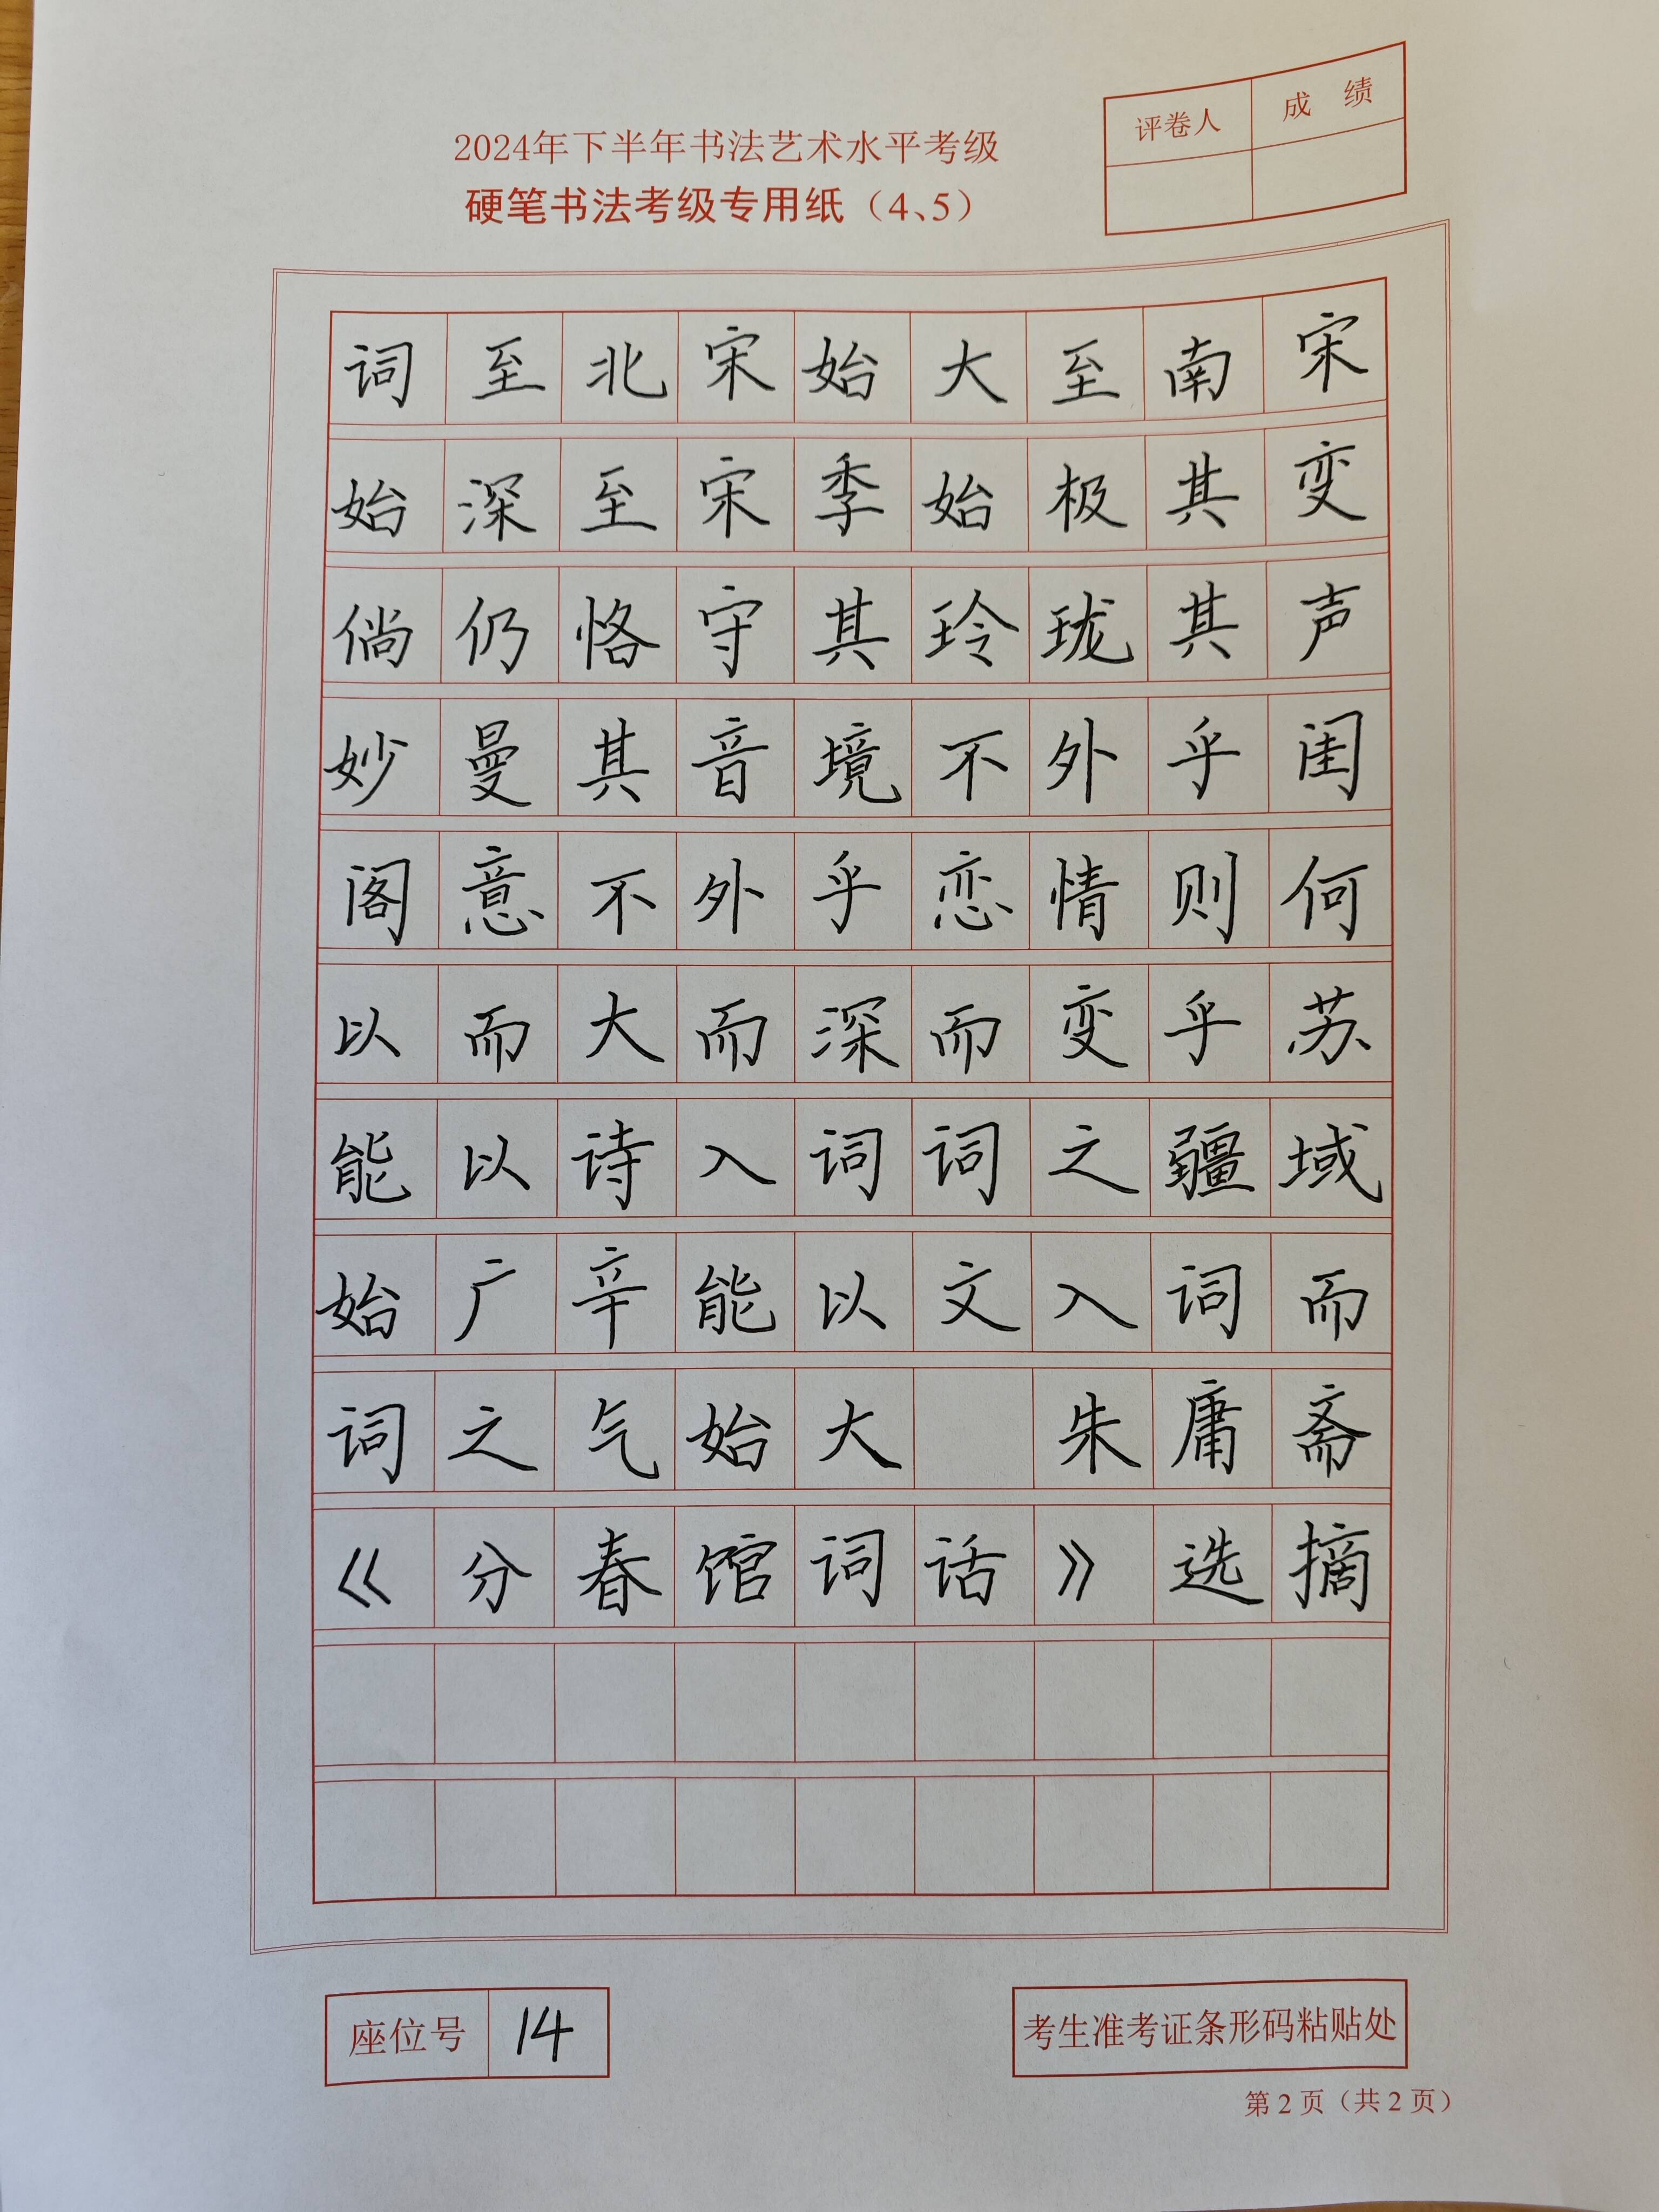 评卷人 成绩
2024年下半年书法艺术水平考级
硬笔书法考级专用纸（4、5）
词至北宋始大至南宋
始深至宋季始极其变
倘仍恪守其玲珑其声
妙曼其音境不外乎闺
阁意不外乎恋情则何
以而大而深而变乎苏
能以诗入词词之疆域
始广辛能以文入词而
词之气始大 朱庸斋
《分春馆词话》选摘
座位号 14
考生准考证条形码粘贴处
第2页（共2页）